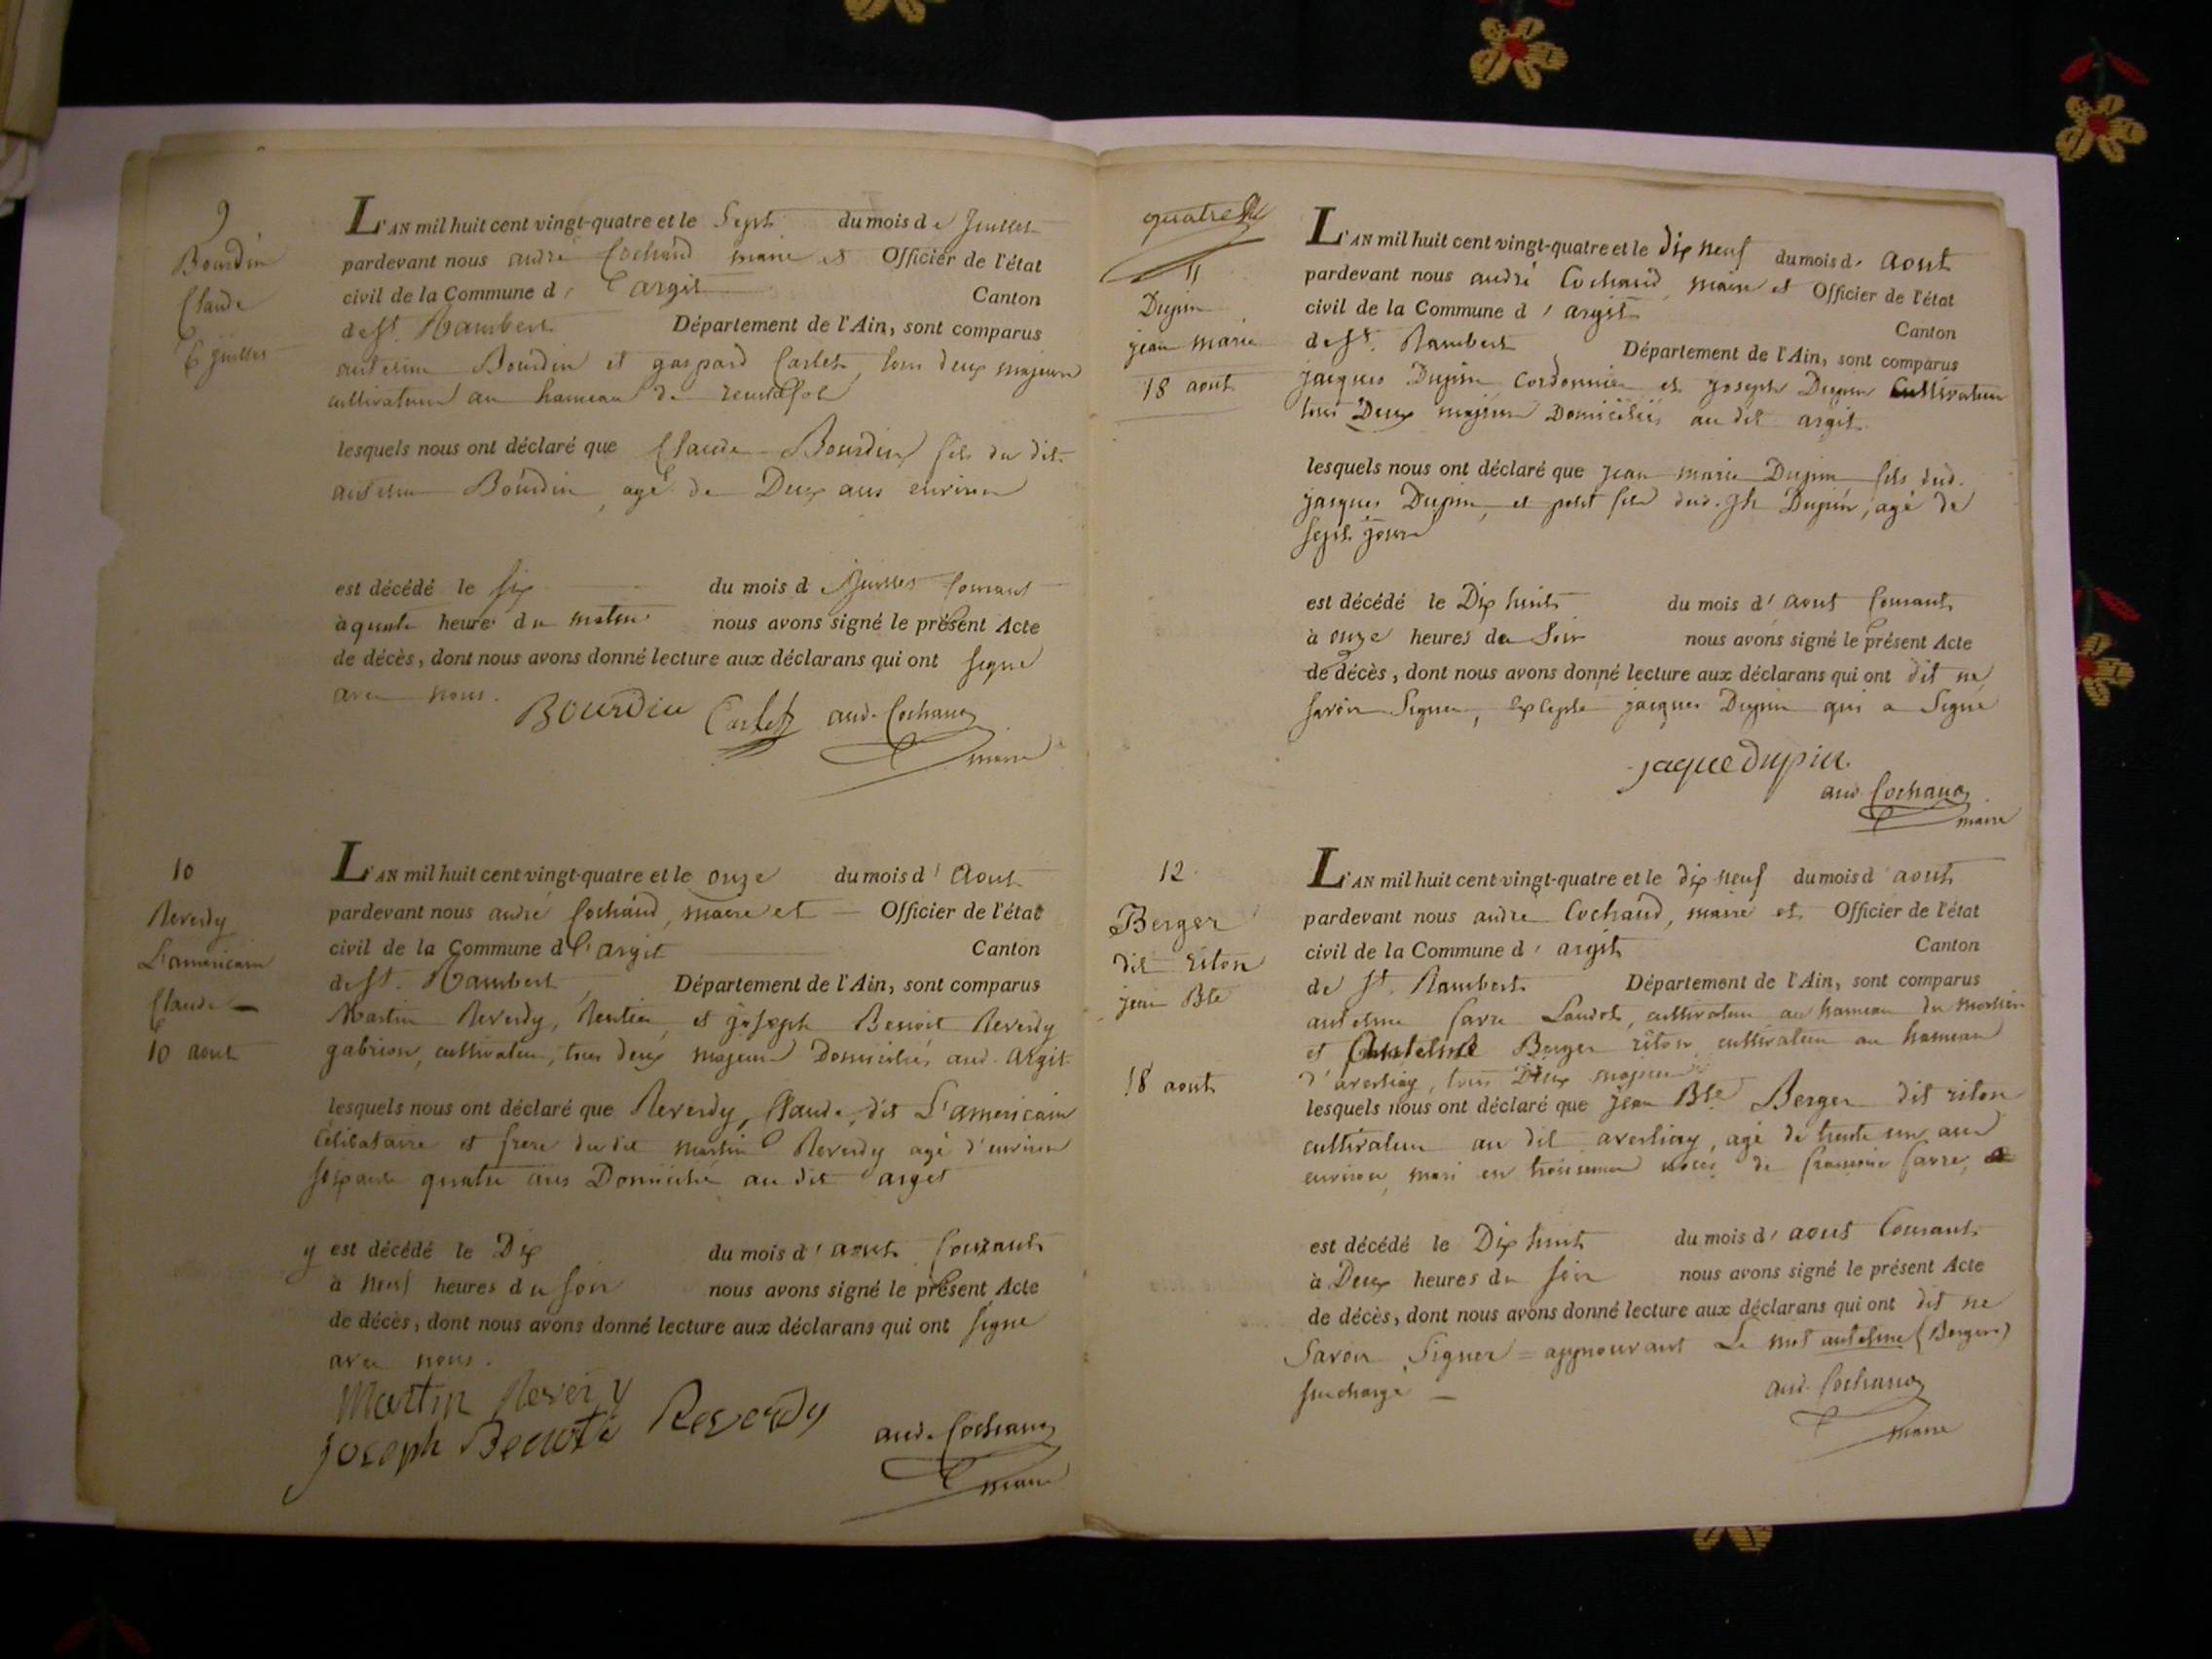 9
Bourdin
Claude
6 juillet
L'AN mil huit cent vingt-quatre et le Sept du mois de Juillet
pardevant nous andré Cochand maire et Officier de l'état
civil de la Commune d'argit Canton
de St. Rambert Département de l'Ain, sont comparus
antelme Bourdin et gaspard Carlet, tous deux majeurs
cultivateurs au hameau de
lesquels nous ont déclaré que Claude Bourdin fils du dit
antelme Bourdin, agé de Deux ans environ
est décédé le Six du mois de Juillet Courant
à quatre heures du matin nous avons signé le présent Acte
de décès, dont nous avons donné lecture aux déclarans qui ont signé
avec nous.
BOURDIN Carlet and. Cochand
maire
10
Reverdy
L'americain
Claude
10 aout
L'AN mil huit cent vingt-quatre et le onze du mois d'Aout
pardevant nous andré Cochand, maire et Officier de l'état
civil de la Commune d'argit Canton
de St. Rambert Département de l'Ain, sont comparus
Martin Reverdy, Rentier, et joseph Benoit Reverdy
gabrion, cultivateur, tous deux majeurs Domiciliés aud. Argit
lesquels nous ont déclaré que Reverdy, Claude, dit L'americain
Célibataire et frere du dit martin Reverdy agé d'environ
soixante quatre ans Domicilié au dit argit
y est décédé le Dix du mois d'aout Courant
à neuf heures du soir nous avons signé le présent Acte
de décès, dont nous avons donné lecture aux déclarans qui ont signé
avec nous.
Martin Reverdy
Joseph Benoit Reverdy and. Cochand
maire
quatre
11
Dupin
jean marie
18 aout
L'AN mil huit cent vingt-quatre et le dix neuf du mois d'Aout
pardevant nous andré Cochand, maire et Officier de l'état
civil de la Commune d'argit Canton
de St. Rambert Département de l'Ain, sont comparus
jacques Dupin Cordonnier et joseph Dupin Cultivateur
tous Deux majeurs Domiciliés au dit argit.
lesquels nous ont déclaré que jean marie Dupin fils dud.
jacques Dupin, et petit fils dud. Jh Dupin, agé de
sept jours
est décédé le Dix huit du mois d'aout Courant
à onze heures du Soir nous avons signé le présent Acte
de décès, dont nous avons donné lecture aux déclarans qui ont dit ne
savoir Signer, Excepté jacques Dupin qui a Signé
jaque dupin
and. Cochand
maire
12
Berger
dit riton
jean Bte
18 aout
L'AN mil huit cent vingt-quatre et le dix neuf du mois d'aout
pardevant nous andré Cochand, maire et Officier de l'état
civil de la Commune d'argit Canton
de St. Rambert Département de l'Ain, sont comparus
antelme favre Landot, cultivateur au hameau du
et Antelme Berger riton cultivateur au hameau
d'averliay, tous Deux majeurs
lesquels nous ont déclaré que jean Bte Berger dit riton
cultivateur au dit averliay, agé de trente un ans
environ, mari en troisiemes noces de favre,
est décédé le Dix huit du mois d'aout Courant
à Deux heures du soir nous avons signé le présent Acte
de décès, dont nous avons donné lecture aux déclarans qui ont dit ne
Savoir Signer = approuvant Le mot antelme (Berger)
surchargé
and. Cochand
maire